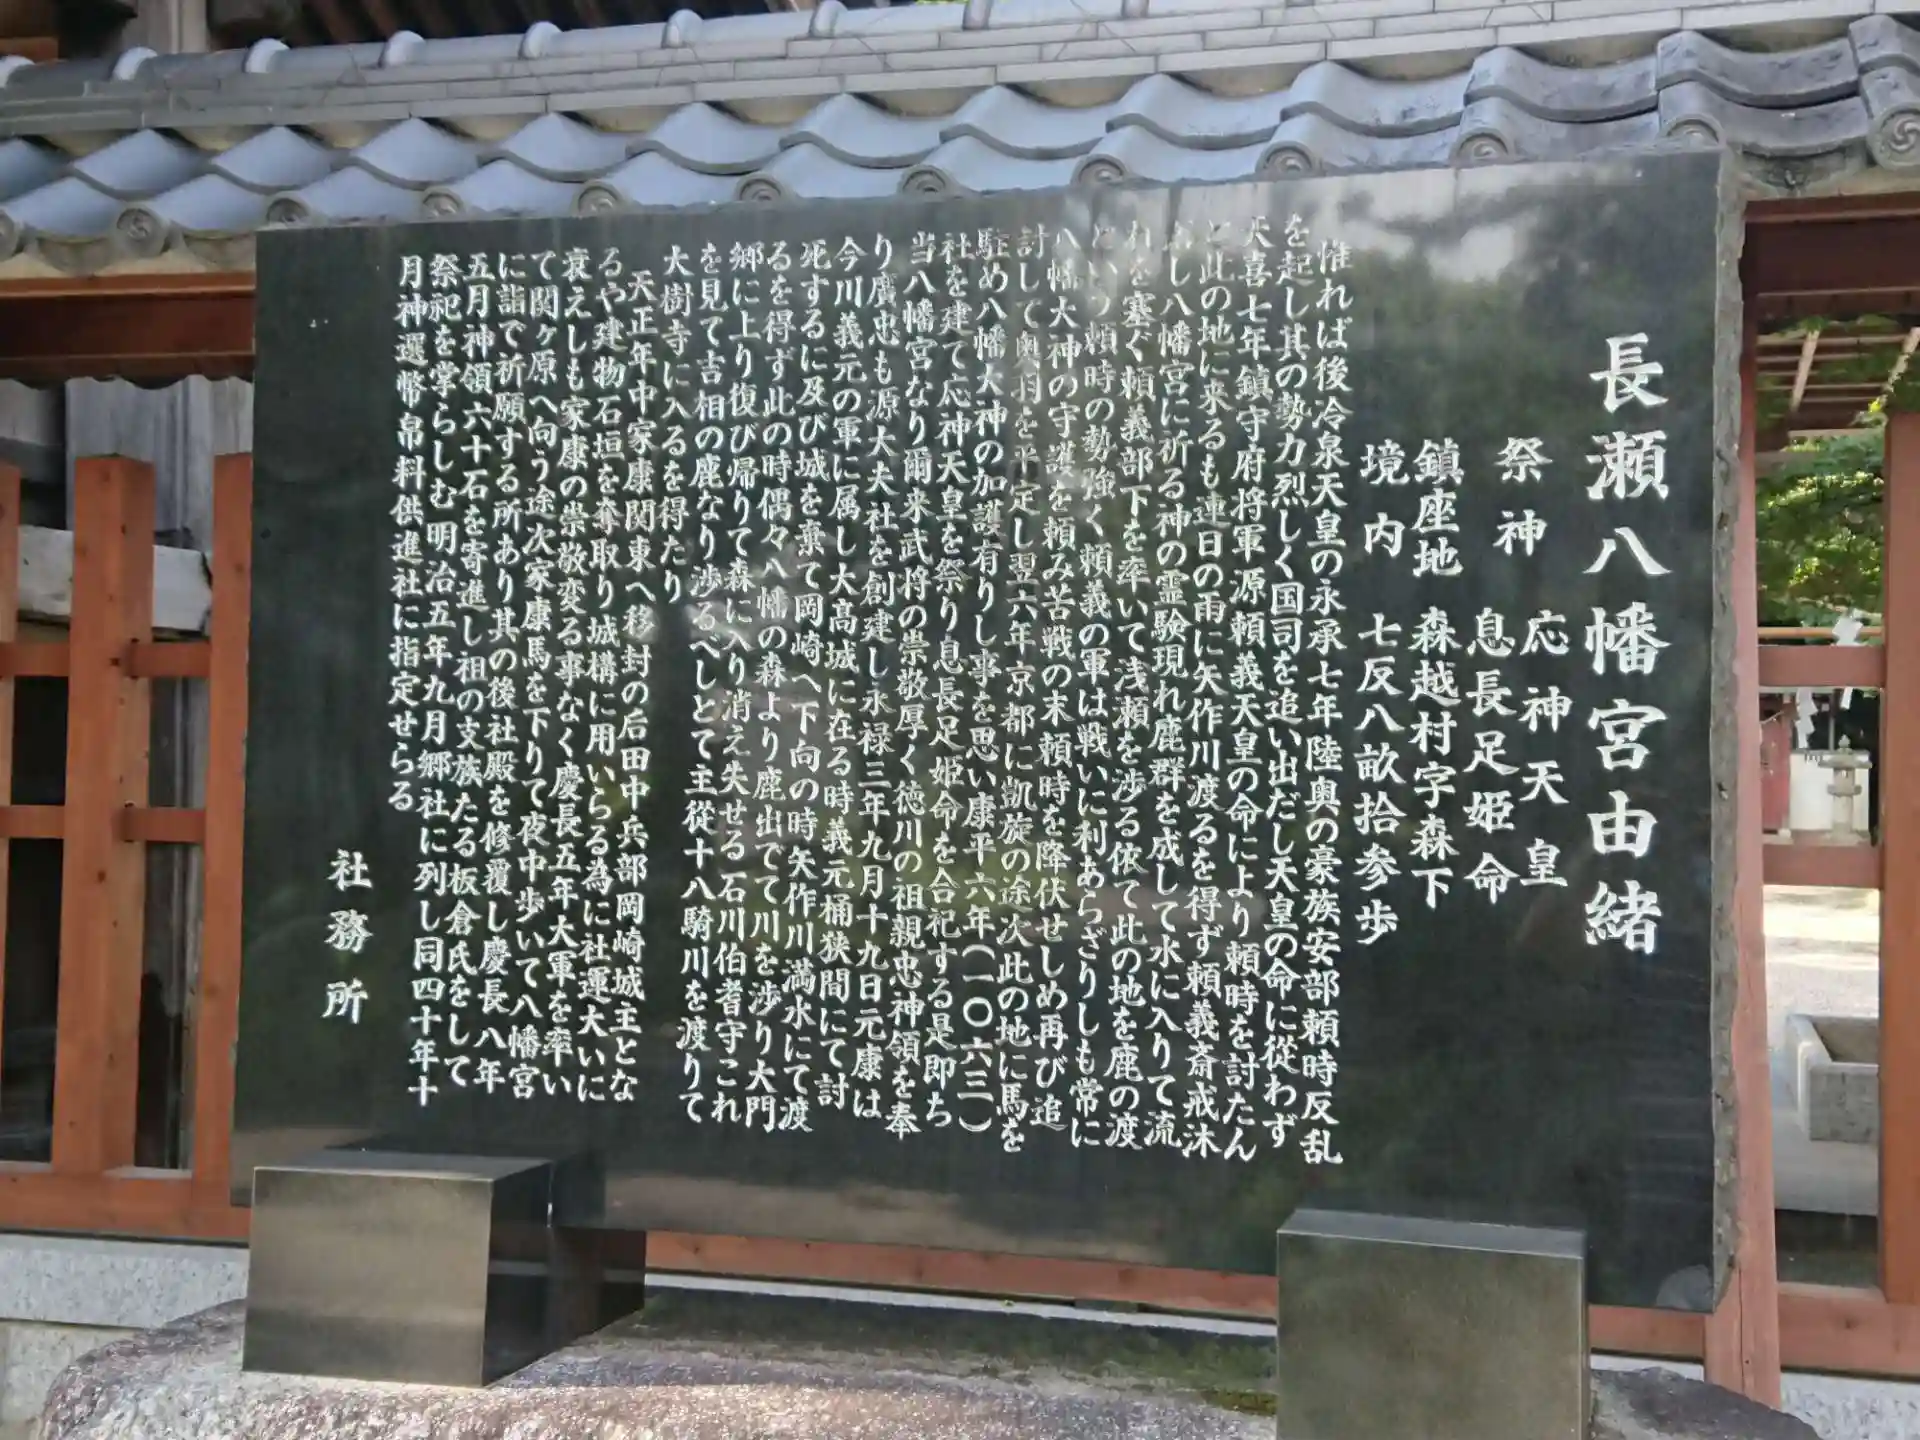 長瀬八幡宮由緒
祭神　応神天皇
息長足姫命
鎮座地　森越村字森下
境内　七反八畝拾参歩
惟れば後冷泉天皇の永承七年陸奥の豪族安部頼時反乱
を起し其の勢力烈しく国司を追い出だし天皇の命に従わず
天喜七年鎮守府将軍源頼義天皇の命により頼時を討たん
と此の地に来るも連日の雨に矢作川渡るを得ず頼義斎戒沐
し八幡宮に祈る神の霊験現れ鹿群を成して水に入りて流
れを塞ぐ頼義部下を率いて浅瀬を渉る依て此の地を鹿の渡
という頼時の勢強く頼義の軍は戦いに利あらざりしも常に
八幡大神の守護を頼み苦戦の末頼時を降伏せしめ再び追
討して奥羽を平定し翌六年京都に凱旋の途次此の地に馬を
駐め八幡大神の加護有りし事を思い康平六年(一〇六三)
社を建て応神天皇を祭り息長足姫命を合祀する是即ち
当八幡宮なり爾来武将の崇敬厚く徳川の祖親忠神領を奉
り廣忠も源大夫社を創建し永禄三年九月十九日元康は
今川義元の軍に属し大高城に在る時義元桶狭間にて討
死するに及び城を棄て岡崎へ下向の時矢作川満水にて渡
るを得ず此の時偶々八幡の森より鹿出でて川を渉り大門
郷に上り復び帰りて森に入り消え失せる石川伯耆守これ
を見て吉相の鹿なり渉るべしとて主従十八騎川を渡りて
大樹寺に入るを得たり
天正年中家康関東へ移封の后田中兵部岡崎城主とな
るや建物石垣を奪取り城構に用いらる為に社運大いに
衰えしも家康の崇敬変る事なく慶長五年大軍を率い
て関ヶ原へ向う途次家康馬を下りて夜中歩いて八幡宮
に詣で祈願する所あり其の後社殿を修覆し慶長八年
五月神領六十石を寄進し祖の支族たる板倉氏をして
祭祀を掌らしむ明治五年九月郷社に列し同四十年十
月神選幣帛料供進社に指定せらる
社務所